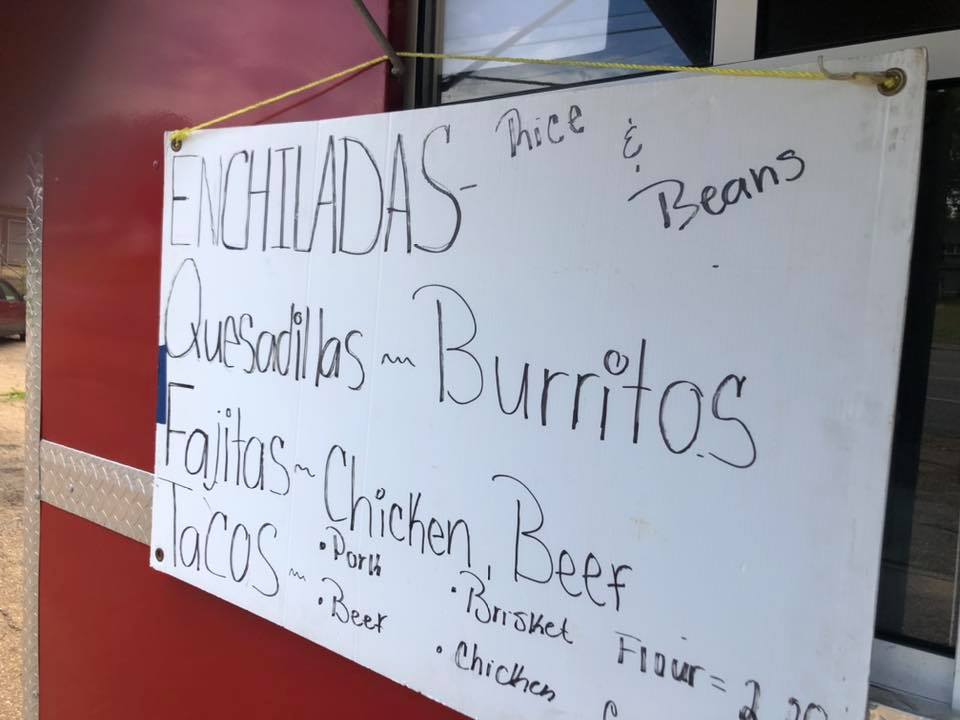 ENCHILADAS- Rice & Beans
Quesadillas ~ Burritos
Fajitas ~ Chicken, Beef
Tacos ~ • Pork • Brisket
• Beef • Chicken
Flour =